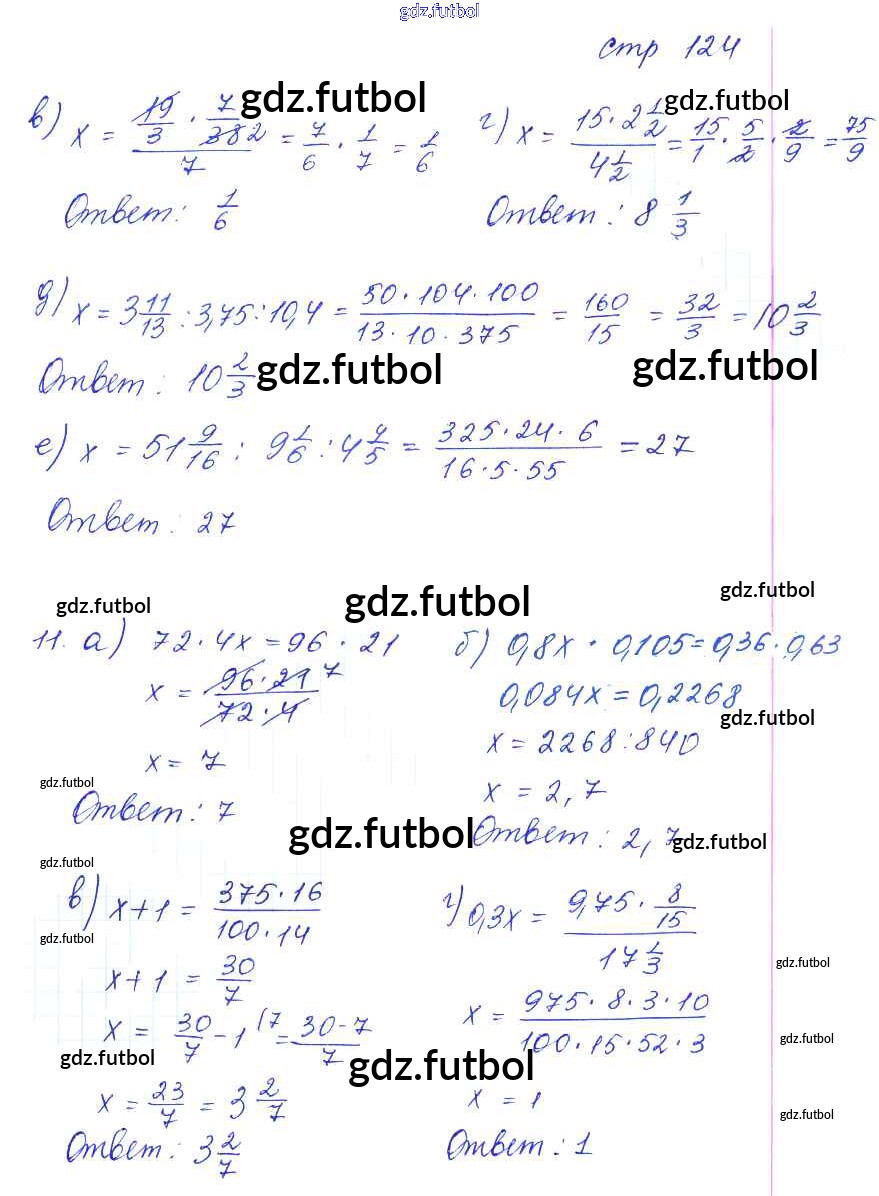 gdz.futbol
стр 124
в) x = (19/3 · 7/38 2)/7 = 7/6 · 1/7 = 1/6
gdz.futbol
г) x = (15 · 2 1/2)/(4 1/2) = 15/1 · 5/2 · 2/9 = 75/9
gdz.futbol
Ответ: 1/6
Ответ: 8 1/3
д) x = 3 11/13 : 3,75 : 10,4 = (50 · 104 · 100)/(13 · 10 · 375) = 160/15 = 32/3 = 10 2/3
Ответ: 10 2/3
gdz.futbol
gdz.futbol
е) x = 51 9/16 : 9 1/6 : 4 4/5 = (325 · 24 · 6)/(16 · 5 · 55) = 27
Ответ: 27
gdz.futbol
gdz.futbol
gdz.futbol
11. а) 72 · 4x = 96 · 21
x = (96 · 21 7)/(72 · 4)
x = 7
gdz.futbol
Ответ: 7
б) 0,8x · 0,105 = 0,36 · 0,63
0,084x = 0,2268
gdz.futbol
x = 2268 : 840
x = 2,7
Ответ: 2,7
gdz.futbol
gdz.futbol
gdz.futbol
в) x + 1 = (375 · 16)/(100 · 14)
gdz.futbol
x + 1 = 30/7
x = 30/7 - 1 (7 = (30 - 7)/7
gdz.futbol
x = 23/7 = 3 2/7
Ответ: 3 2/7
г) 0,3x = (9,75 · 8/15)/(17 1/3)
gdz.futbol
x = (975 · 8 · 3 · 10)/(100 · 15 · 52 · 3)
gdz.futbol
gdz.futbol
x = 1
gdz.futbol
Ответ: 1